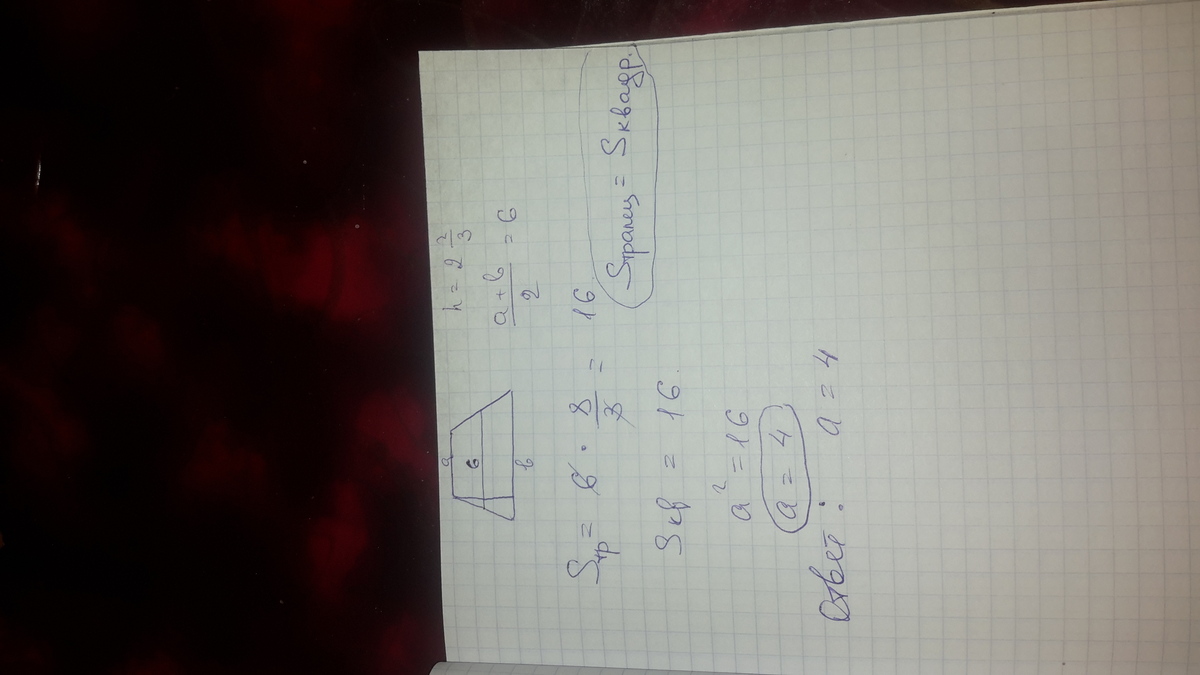 a
6
в
h = 2 2/3
(a + в)/2 = 6
Sтр = 6 · 8/3 = 16
Sтрапец = Sквадр.
Sкв = 16.
a² = 16
a = 4
Ответ: a = 4